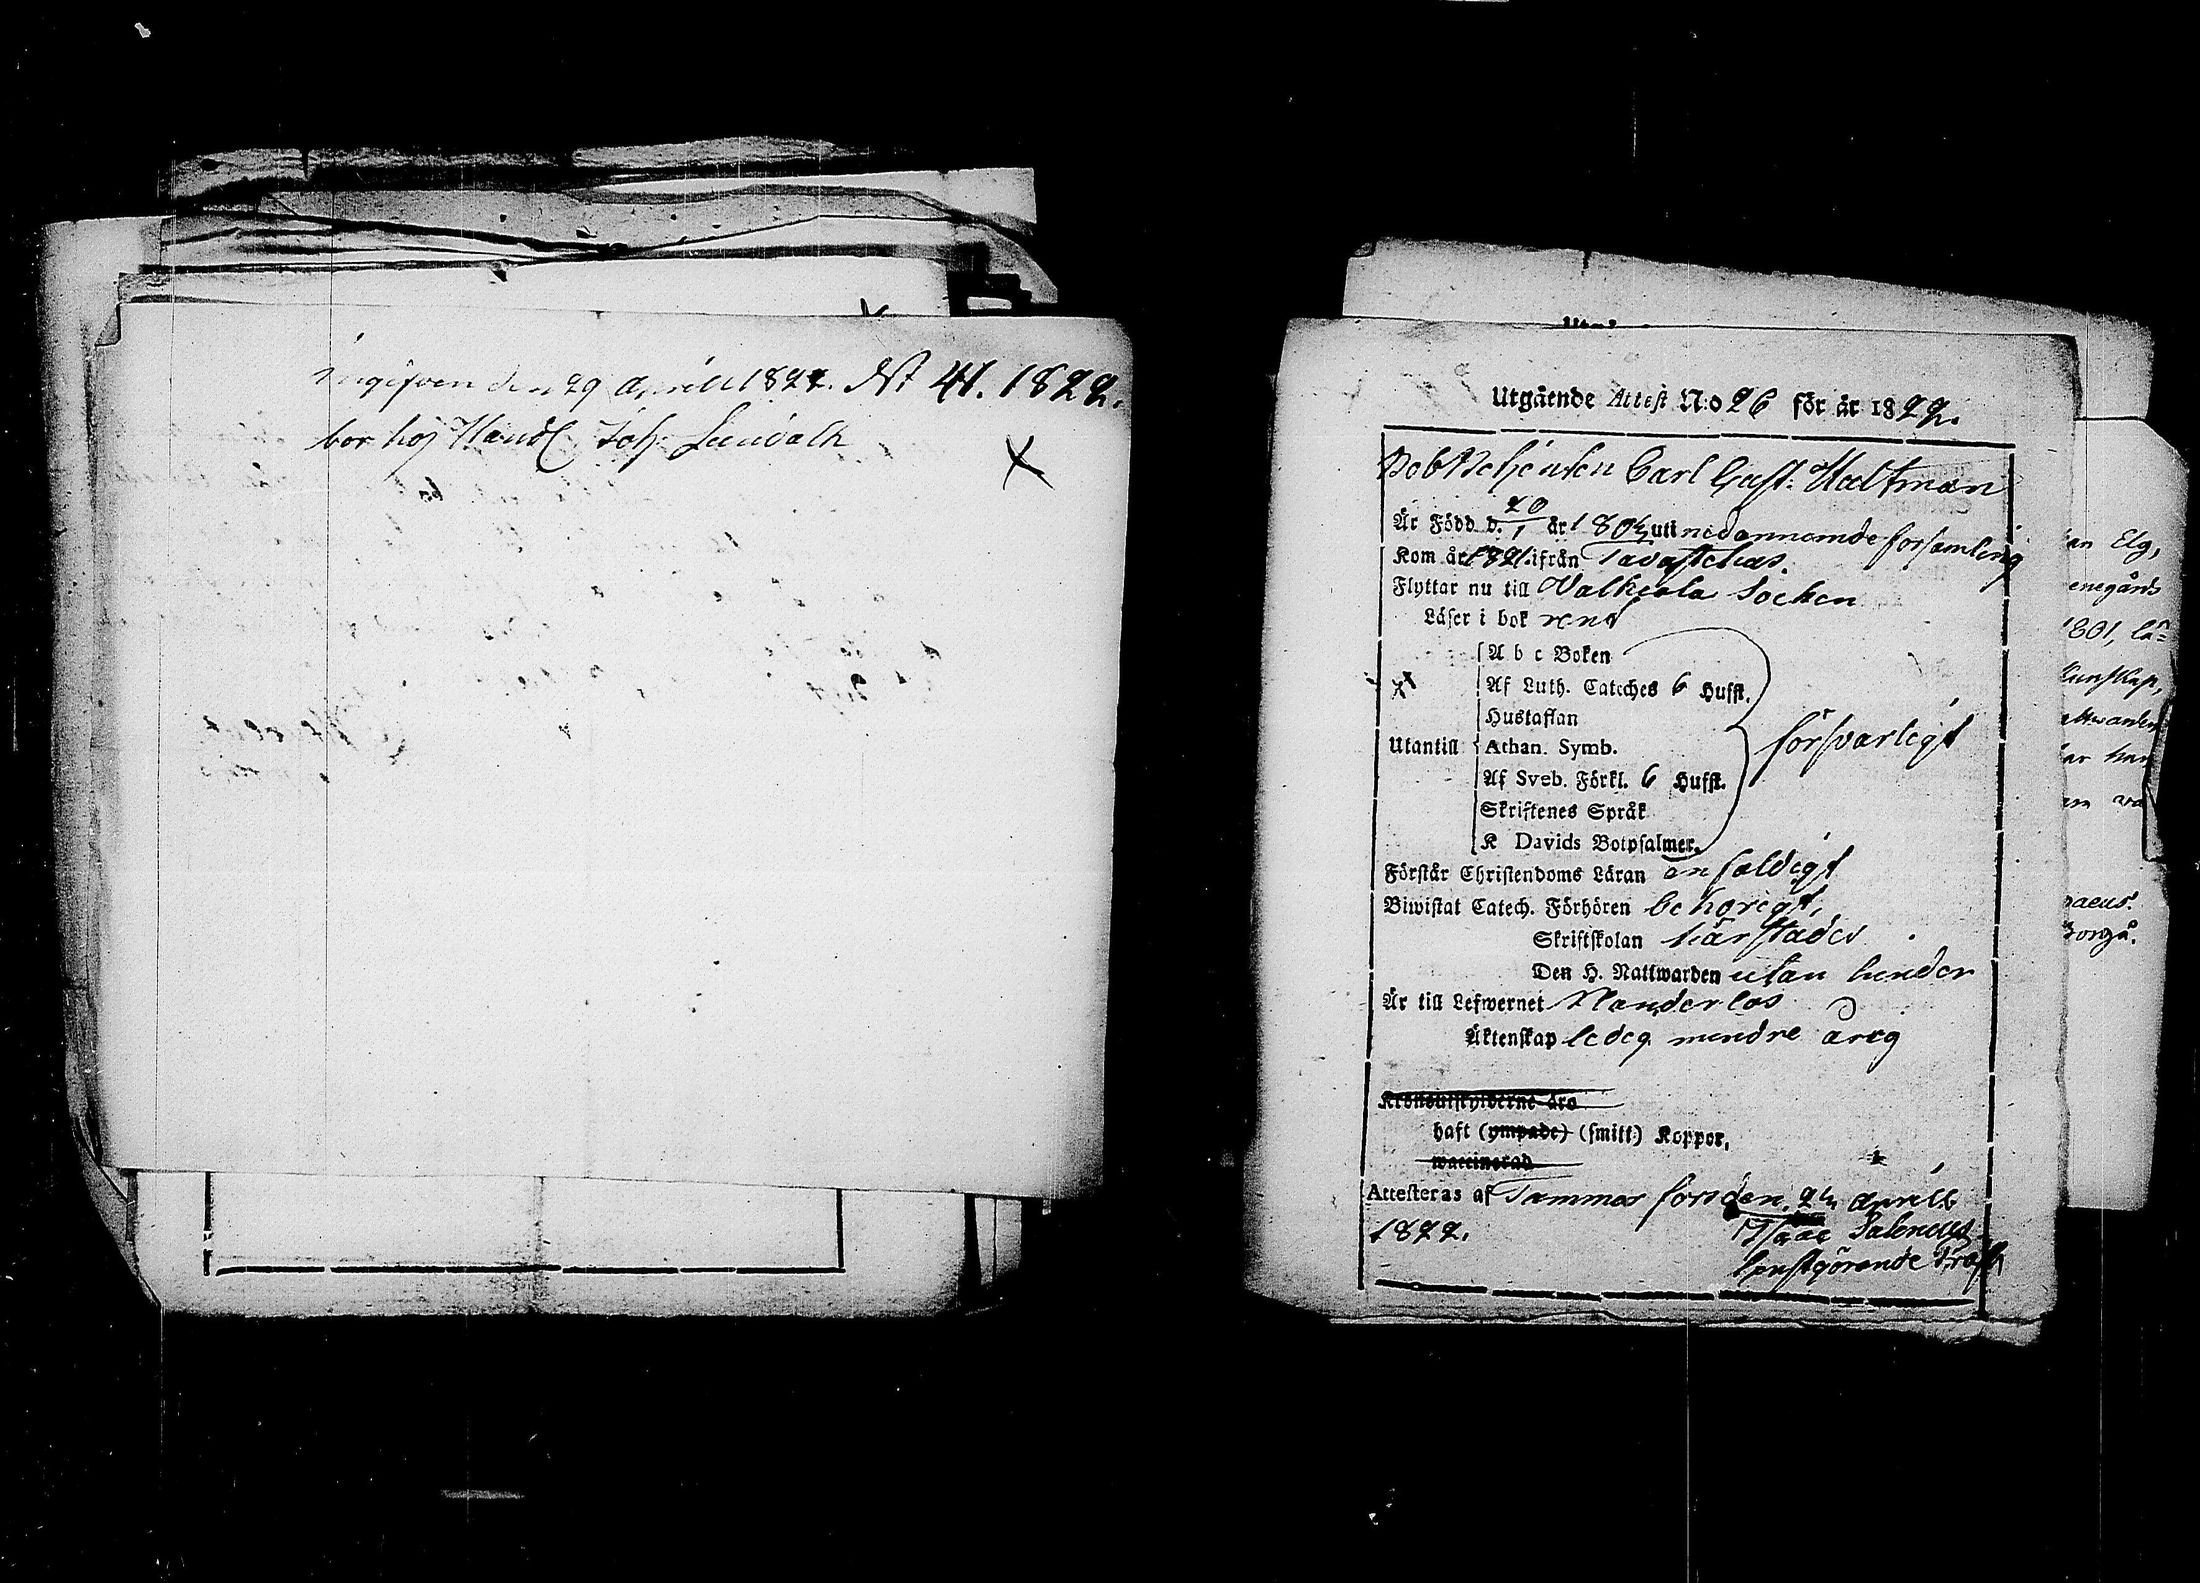 ingifven den 29 Aprill 1822. N 41. 1822.
bor hoj Handl Joh: Lundalh
Utgående Attest N:o 26 för år 1822.
Carl Gust: Haltman
Är Född d. 20/1 är 1804 uti nedannamde församling
Kom år 1821. ifrån Tavastehus.
Flyttar nu till Valkeala Socken
Läser i bok rent
A b c Boken
Af Luth. Cateches 6 Hufst.
Hustaflan
Utantill Athan. Symb. försvarligt
Af Sveb. Förkl. 6 Hufst.
Skriftenes Språk
K Davids Botpsalmer.
Förstår Christendoms Läran enfaldigt
Biwistat Catech. Förhören behörigt,
Skriftskolan härstädes
Den H. Nattwarden utan hinder
Är till Lefwernet klanderlös
Äktenskap ledig mindre årig
Kronoutskylderne äro
haft (ympade) (smitt:) Koppor,
waccinerad
Attesteras af Tammerfors den 24 Aprill
1822. Isaac Salenius
tjenstgörande
an Elg,
enegårds
1801, lä=
kunskap,
attwarden
ar han
am
aeus.
Borgå.